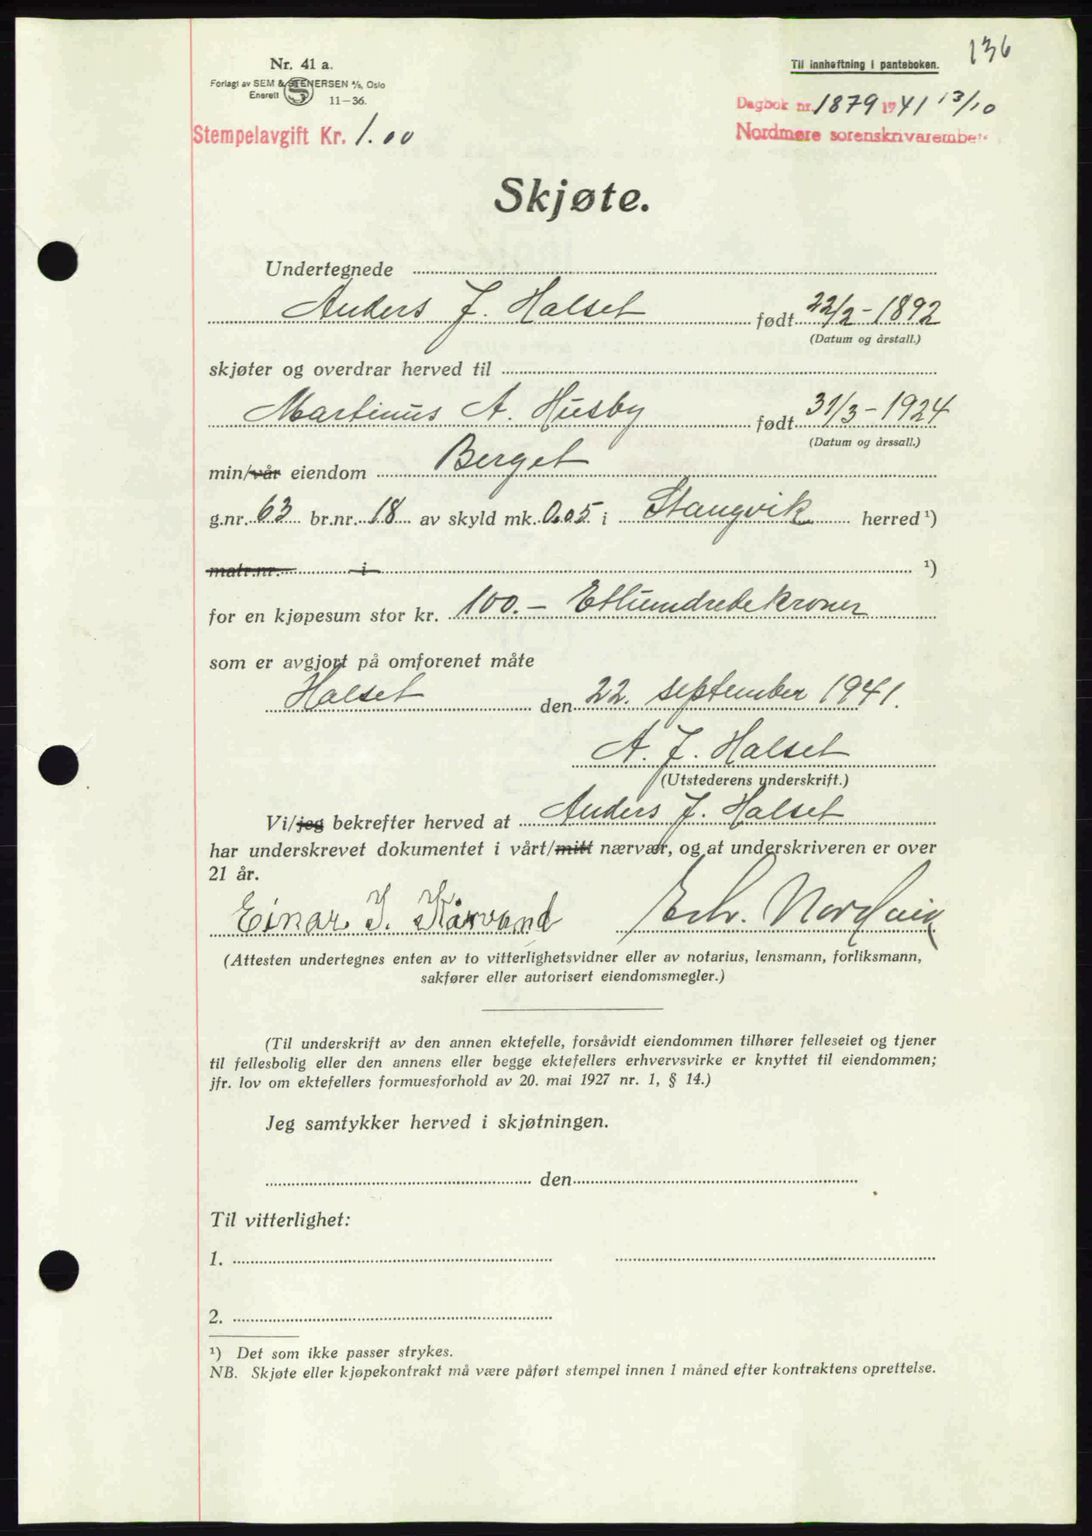 136
Nr. 41 a.
Til innheftning i panteboken.
Forlagt av SEM & STENERSEN A/S, Oslo
Enerett 11-36.
Dagbok nr. 1879 1941 13/10
Stempelavgift Kr. 1.00
Nordmøre sorenskrivarembe
Skjøte.
Undertegnede
Anders J. Halset født 22/2-1892
(Datum og årstall.)
skjøter og overdrar herved til
Martinus A. Husby født 31/3-1924
(Datum og årssall.)
min/vår eiendom Berget
g.nr. 63 br.nr. 18 av skyld mk. 0.05 i Stangvik herred ¹)
matr.nr. i ¹)
for en kjøpesum stor kr. 100.- Etthundrede kroner
som er avgjort på omforenet måte
Halset den 22. september 1941.
A. J. Halset
(Utstederens underskrift.)
Vi/jeg bekrefter herved at Anders J. Halset
har underskrevet dokumentet i vårt/mitt nærvær, og at underskriveren er over
21 år.
Einar J. Kårvand
(Attesten undertegnes enten av to vitterlighetsvidner eller av notarius, lensmann, forliksmann,
sakfører eller autorisert eiendomsmegler.)
(Til underskrift av den annen ektefelle, forsåvidt eiendommen tilhører felleseiet og tjener
til fellesbolig eller den annens eller begge ektefellers erhvervsvirke er knyttet til eiendommen;
jfr. lov om ektefellers formuesforhold av 20. mai 1927 nr. 1, § 14.)
Jeg samtykker herved i skjøtningen.
den
Til vitterlighet:
1.
2.
¹) Det som ikke passer strykes.
NB. Skjøte eller kjøpekontrakt må være påført stempel innen 1 måned efter kontraktens oprettelse.